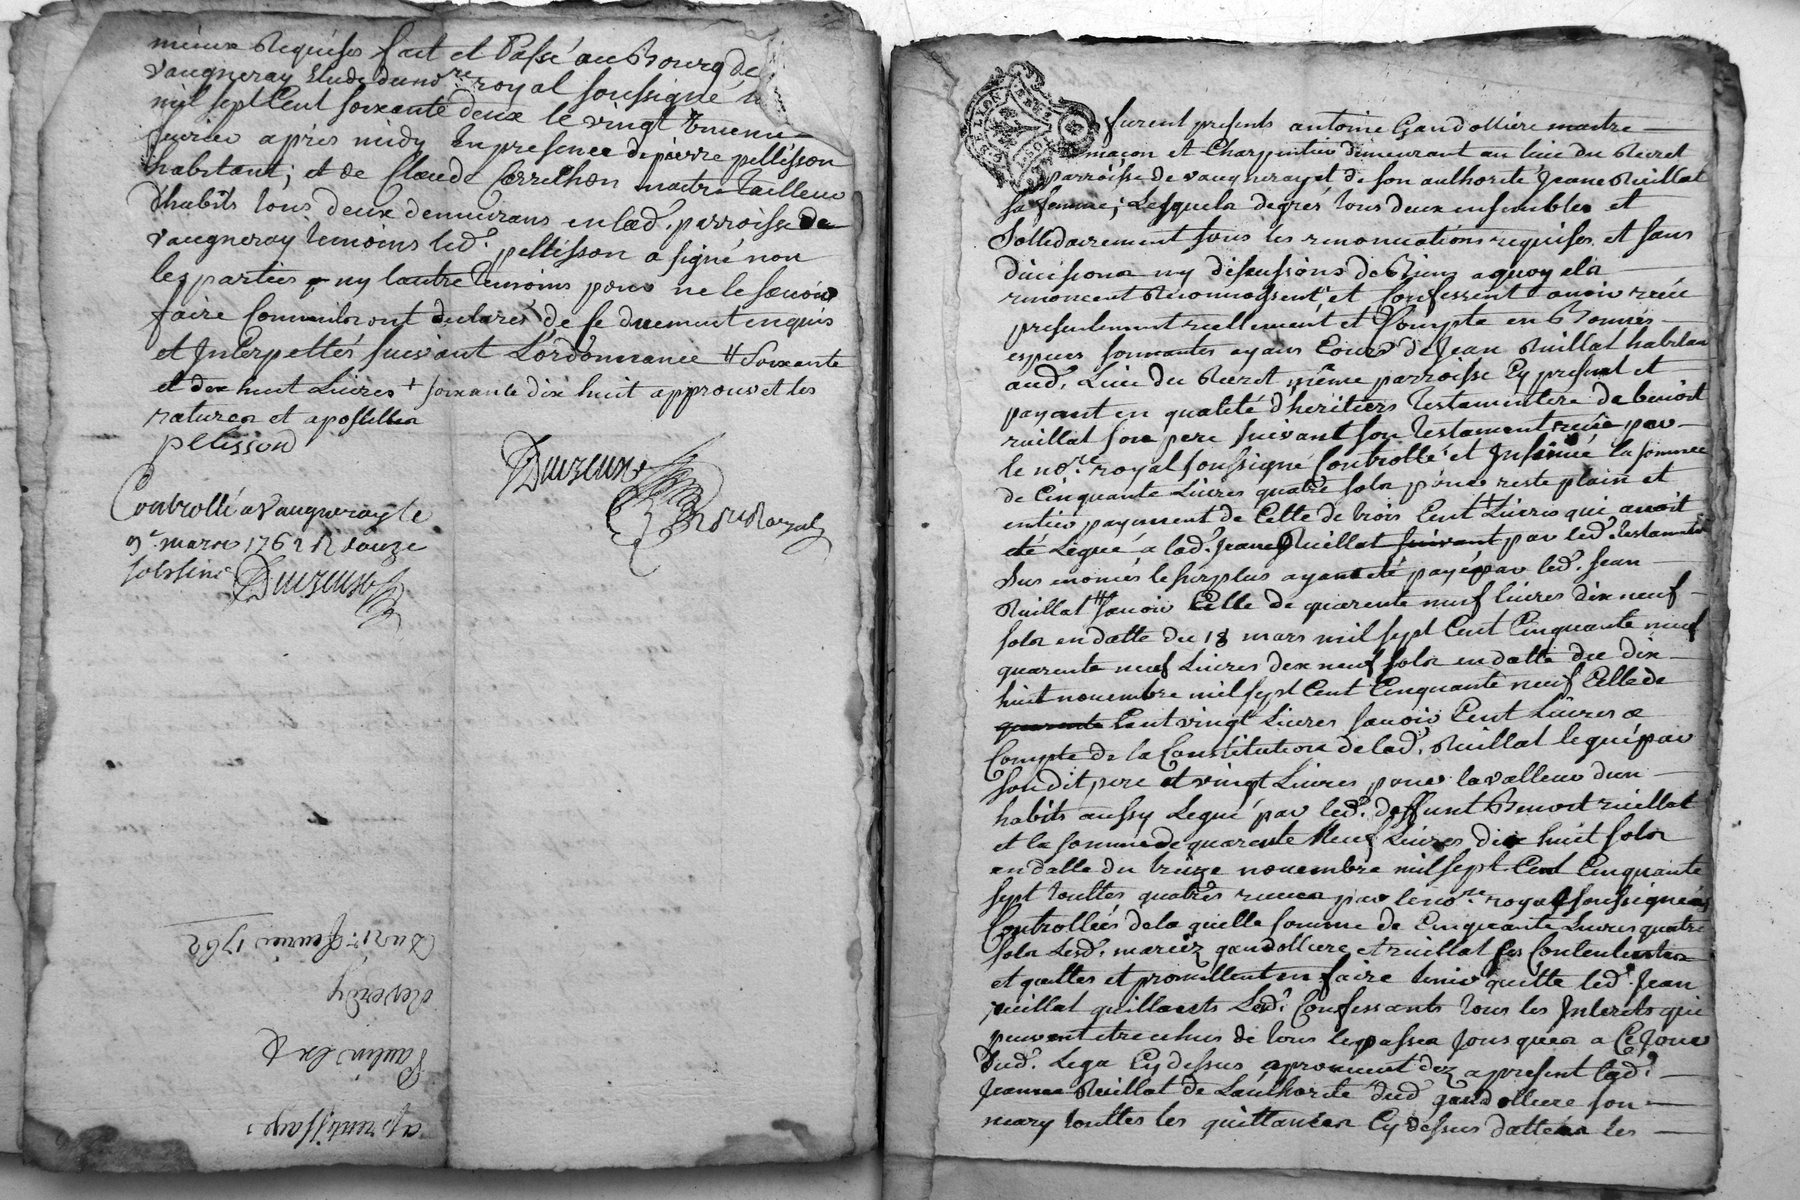 mieux Requises fait et Passé au Bourg de
vaugneray Etude du no.re royal soussigné
mil sept Cent soixante deux le vingt
fevrier apres midy En presence de pierre pellisson
habitant; et de Claude Corrichon maitre Tailleur
d'habits tous deux demeurans en lad. parroisse de
vaugneray temoins led. pellisson a signé non
les parties ny lautre temoins pour ne le sçavoir
faire Comme ils ont declarés de ce duement enquis
et Interpellés suivant L'ordonnance # Soixante
et dix huit Livres + soixante dix huit approuvet les
ratures et apostilles
pelisson
Controllé a Vaugneray le
9e. mars 1762 R douze
sols six
no.re Royal
Du 21e. fevrier 1762
Reverdy
aprentissage
LYON
furent presents antoine Gandolliere maitre
maçon et Charpentier demeurant au lieu du Recret
parroisse de vaugneray et de son authorité Jeane Ruillat
sa femme; Lesquels de grés tous deux ensembles et
Sollidairement sous les renonciations requises et sans
divisions ny discussions de Biens a quoy els
renoncent Reconnoissent et Confessent avoir reçu
presentement reellement et Compte en Bonnes
especes sonnantes ayans Cours de Jean Ruillat habitan
aud. Lieu du Recret même parroisse Cy present et
payant en qualité d'heritiers testamentere de benoit
ruillat son pere suivant son testament reçue par
le no.re royal soussigné Controllé et Insinué la somme
de Cinquante Livres quatre sols pour reste plain et
entier payement de Celle de trois Cent + Livres qui avoit
été Legué a lad. Jeane Ruillat suivant par led. testament
Sus enoncés le surplus ayant été payé par led. Jean
Ruillat # Savoir Celle de quarente neuf livres dix neuf
sols en datte du 18 mars mil sept Cent Cinquante neuf
quarente neuf Livres dix neuf sols en datte du dix
huit novembre mil sept Cent Cinquante neuf Celle de
quarente Cent vingt Livres savoir Cent Livres a
Compte de la Constitution de lad. Ruillat legué par
son dit pere et vingt Livres pour la valleur d'un
habits aussy Legué par led. deffunt Benoit ruillat
et la somme de quarente Neuf Livres dix huit sols
en datte du treize novembre mil sept Cent Cinquante
sept touttes quatres reçues par le no.re royal soussignés
Controllées de la quelle somme de Cinquante Livres quatre
sols Lesd. mariéz gandolliere et ruillat se Contentent
et quittes et promettent en faire tenir quitte led. Jean
ruillat quittants Lesd. Confessants tous les Interets qui
peuvent etre echus de tous le passea Jousques a Ce Jour
dud. Lega Cy dessus aprouvent dez a present lad.
Jeanne Ruillat de L'authorité dud gandolliere son
mary touttes les quittances Cy dessus dattées les